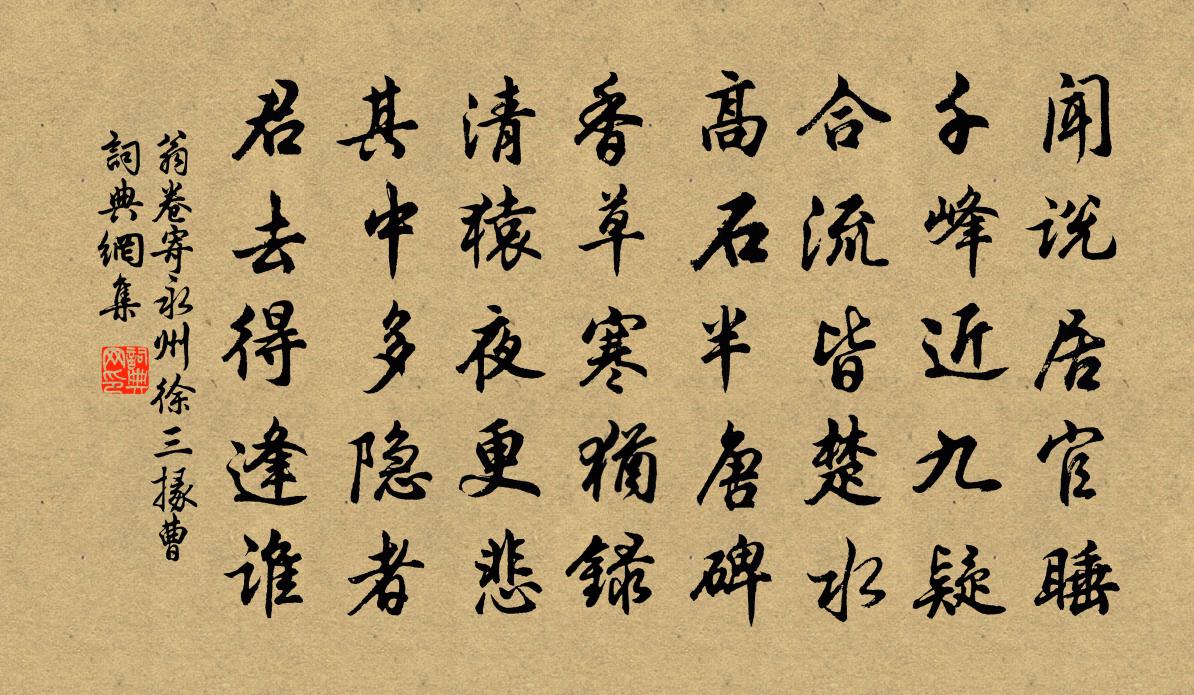 闻说居官睡
千峰近九疑
合流皆楚水
高石半唐碑
香草寒猶録
清猿夜更悲
其中多隐者
君去得逢谁
翁卷寄永州徐三掾曹
詞典網集
詞典
网印